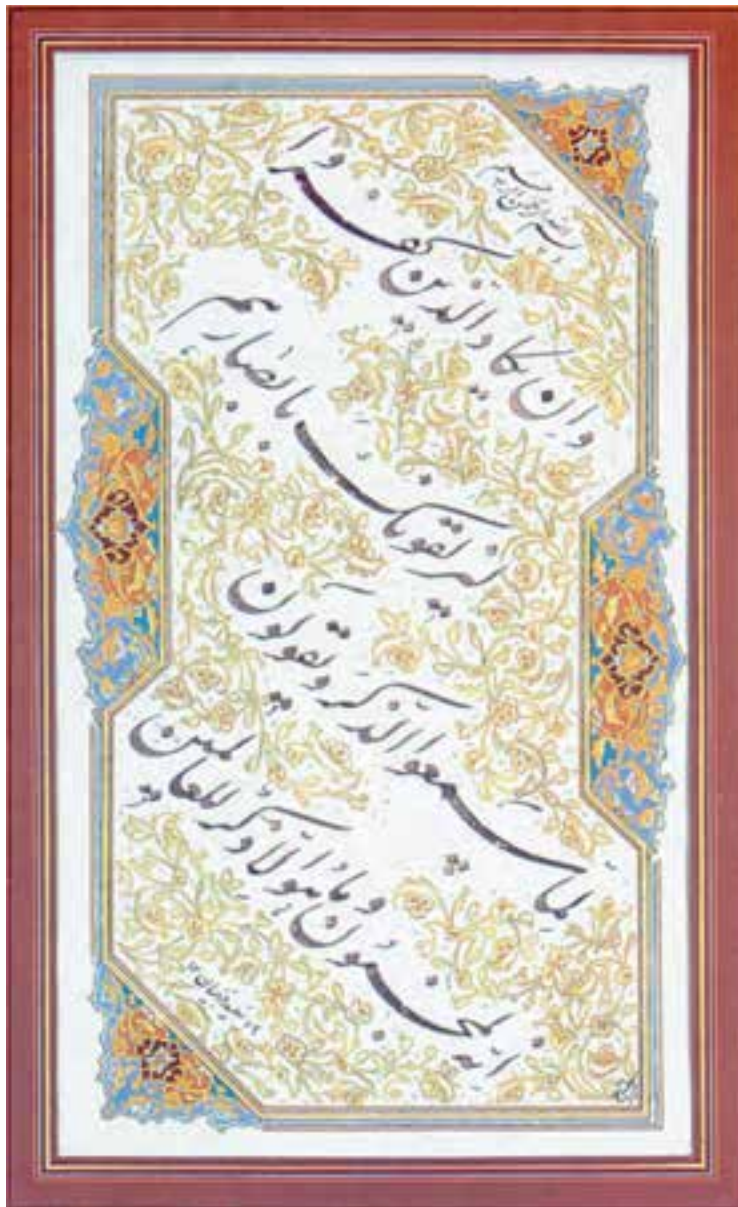 بسم الله الرحمن الرحیم
وان یکاد الذین کفروا
لیزلقونک بابصارهم
لما سمعوا الذکر ویقولون
انه لمجنون وما هو الا ذکر للعالمین